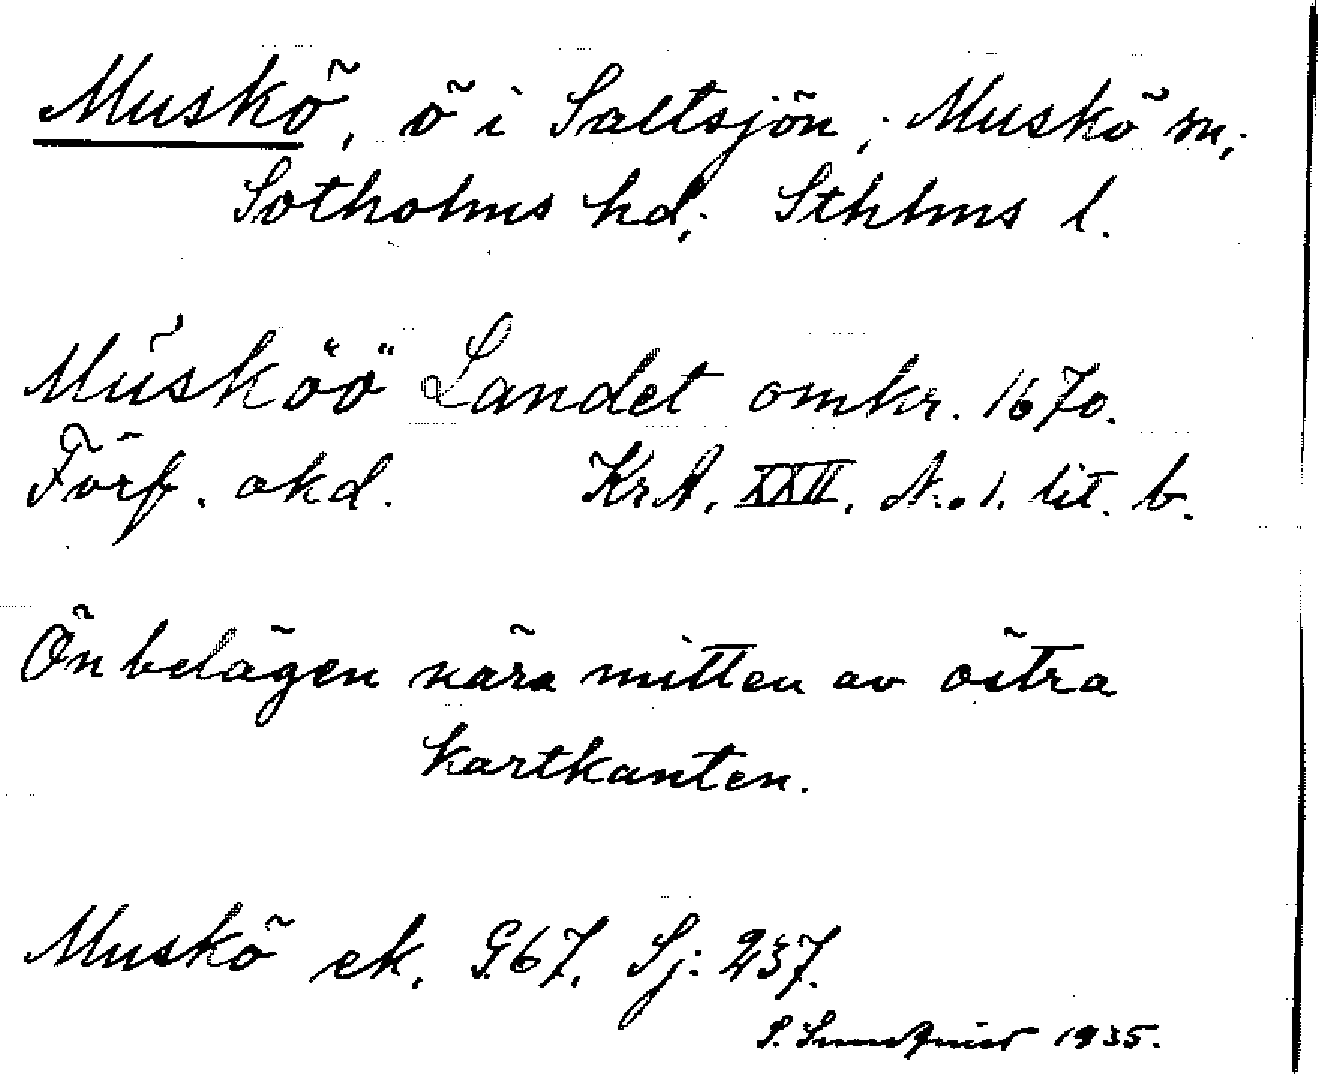 Muskö, ö i Saltsjön; Muskö sn;
Sotholms hd; Sthlms l.
Musköö Landet omkr. 1670.
Förf. okd. KrA. XXII. N.o 1. lit. b.
Ön belägen nära mitten av östra
kartkanten.
Muskö ek. G.67. Sj: 237.
S. Sundqvist 1935.